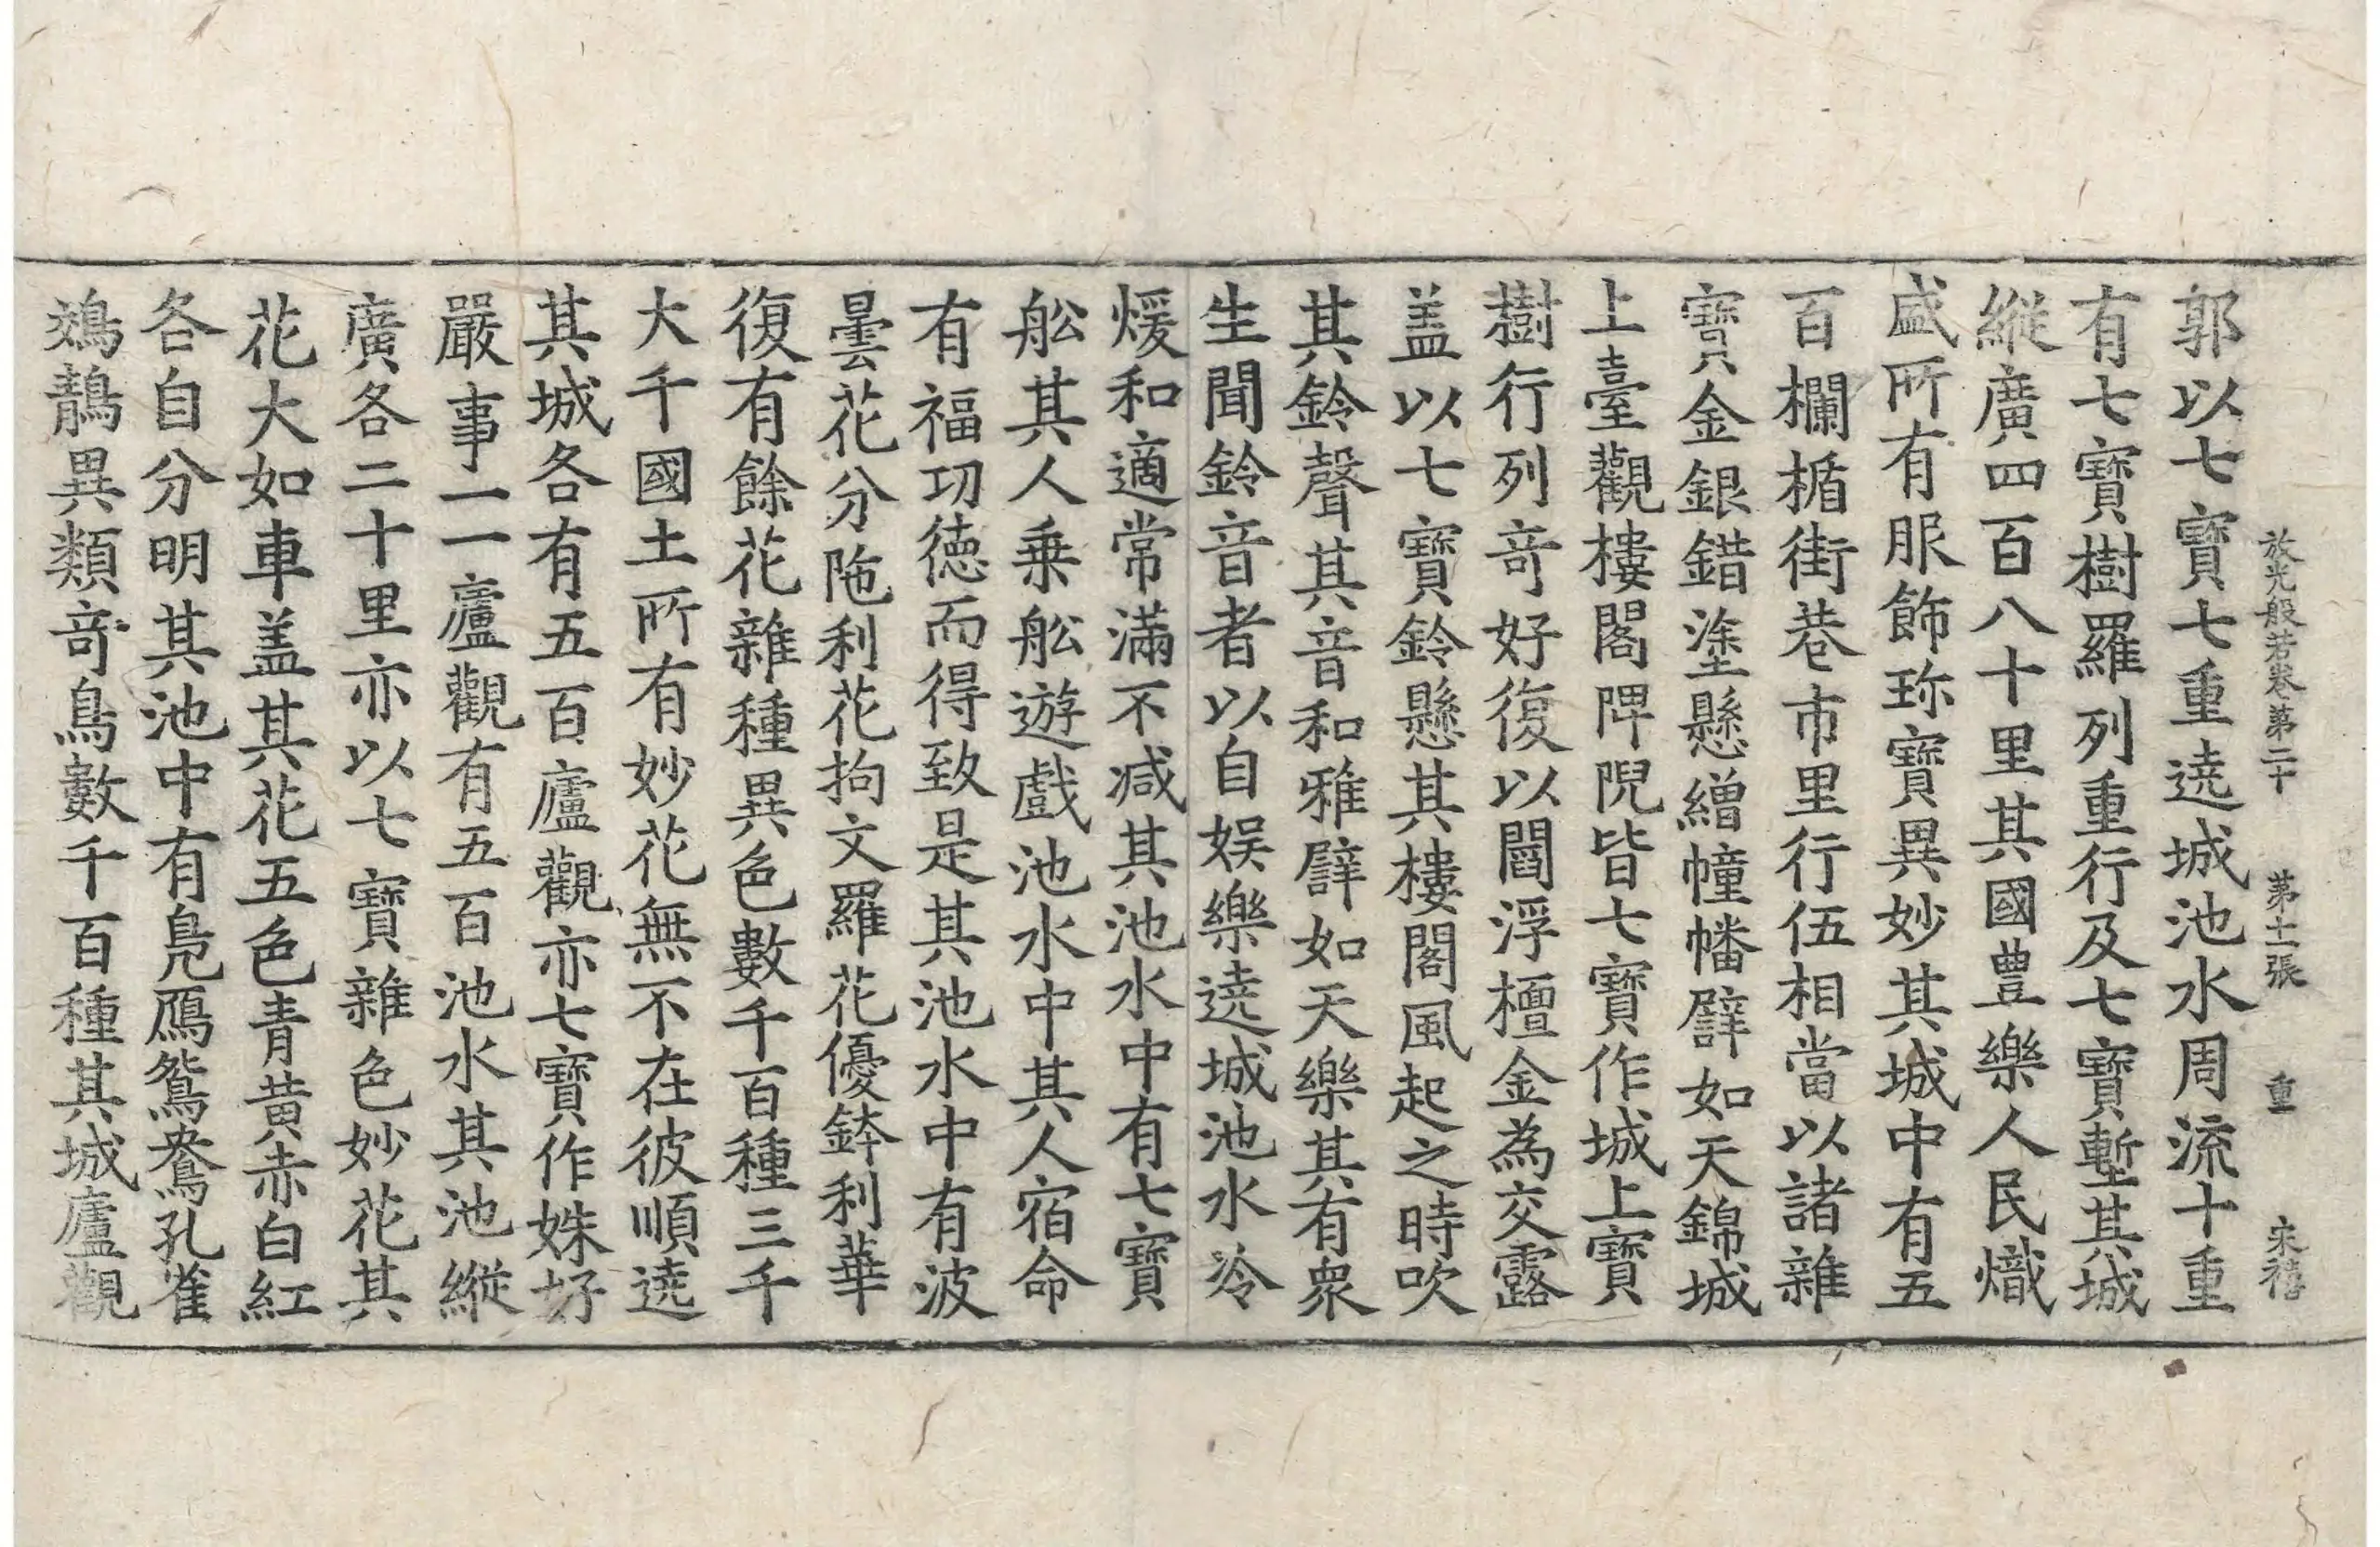 放光般若卷第二十　第十一張　重　宋禧
郭以七寶七重遶城池水周流十重
有七寶樹羅列重行及七寶塹其城
縱廣四百八十里其國豊樂人民熾
盛所有服飾珎寶異妙其城中有五
百欄楯街巷市里行伍相當以諸雜
寶金銀錯塗懸繒幢幡譬如天錦城
上臺觀樓閣陴堄皆七寶作城上寶
樹行列竒好復以閻浮檀金為交露
盖以七寶鈴懸其樓閣風起之時吹
其鈴聲其音和雅譬如天樂其有衆
生聞鈴音者以自娛樂遶城池水冷
煖和適常滿不減其池水中有七寶
舩其人乗舩遊戲池水中其人宿命
有福功徳而得致是其池水中有波
曇花分陁利花拘文羅花優鉢利華
復有餘花雜種異色數千百種三千
大千國土所有妙花無不在彼順遶
其城各有五百廬觀亦七寶作姝好
嚴事一一廬觀有五百池水其池縱
廣各二十里亦以七寶雜色妙花其
花大如車盖其花五色青黄赤白紅
各自分明其池中有鳬鴈鴛鴦孔雀
鵁鶄異類竒鳥數千百種其城廬觀